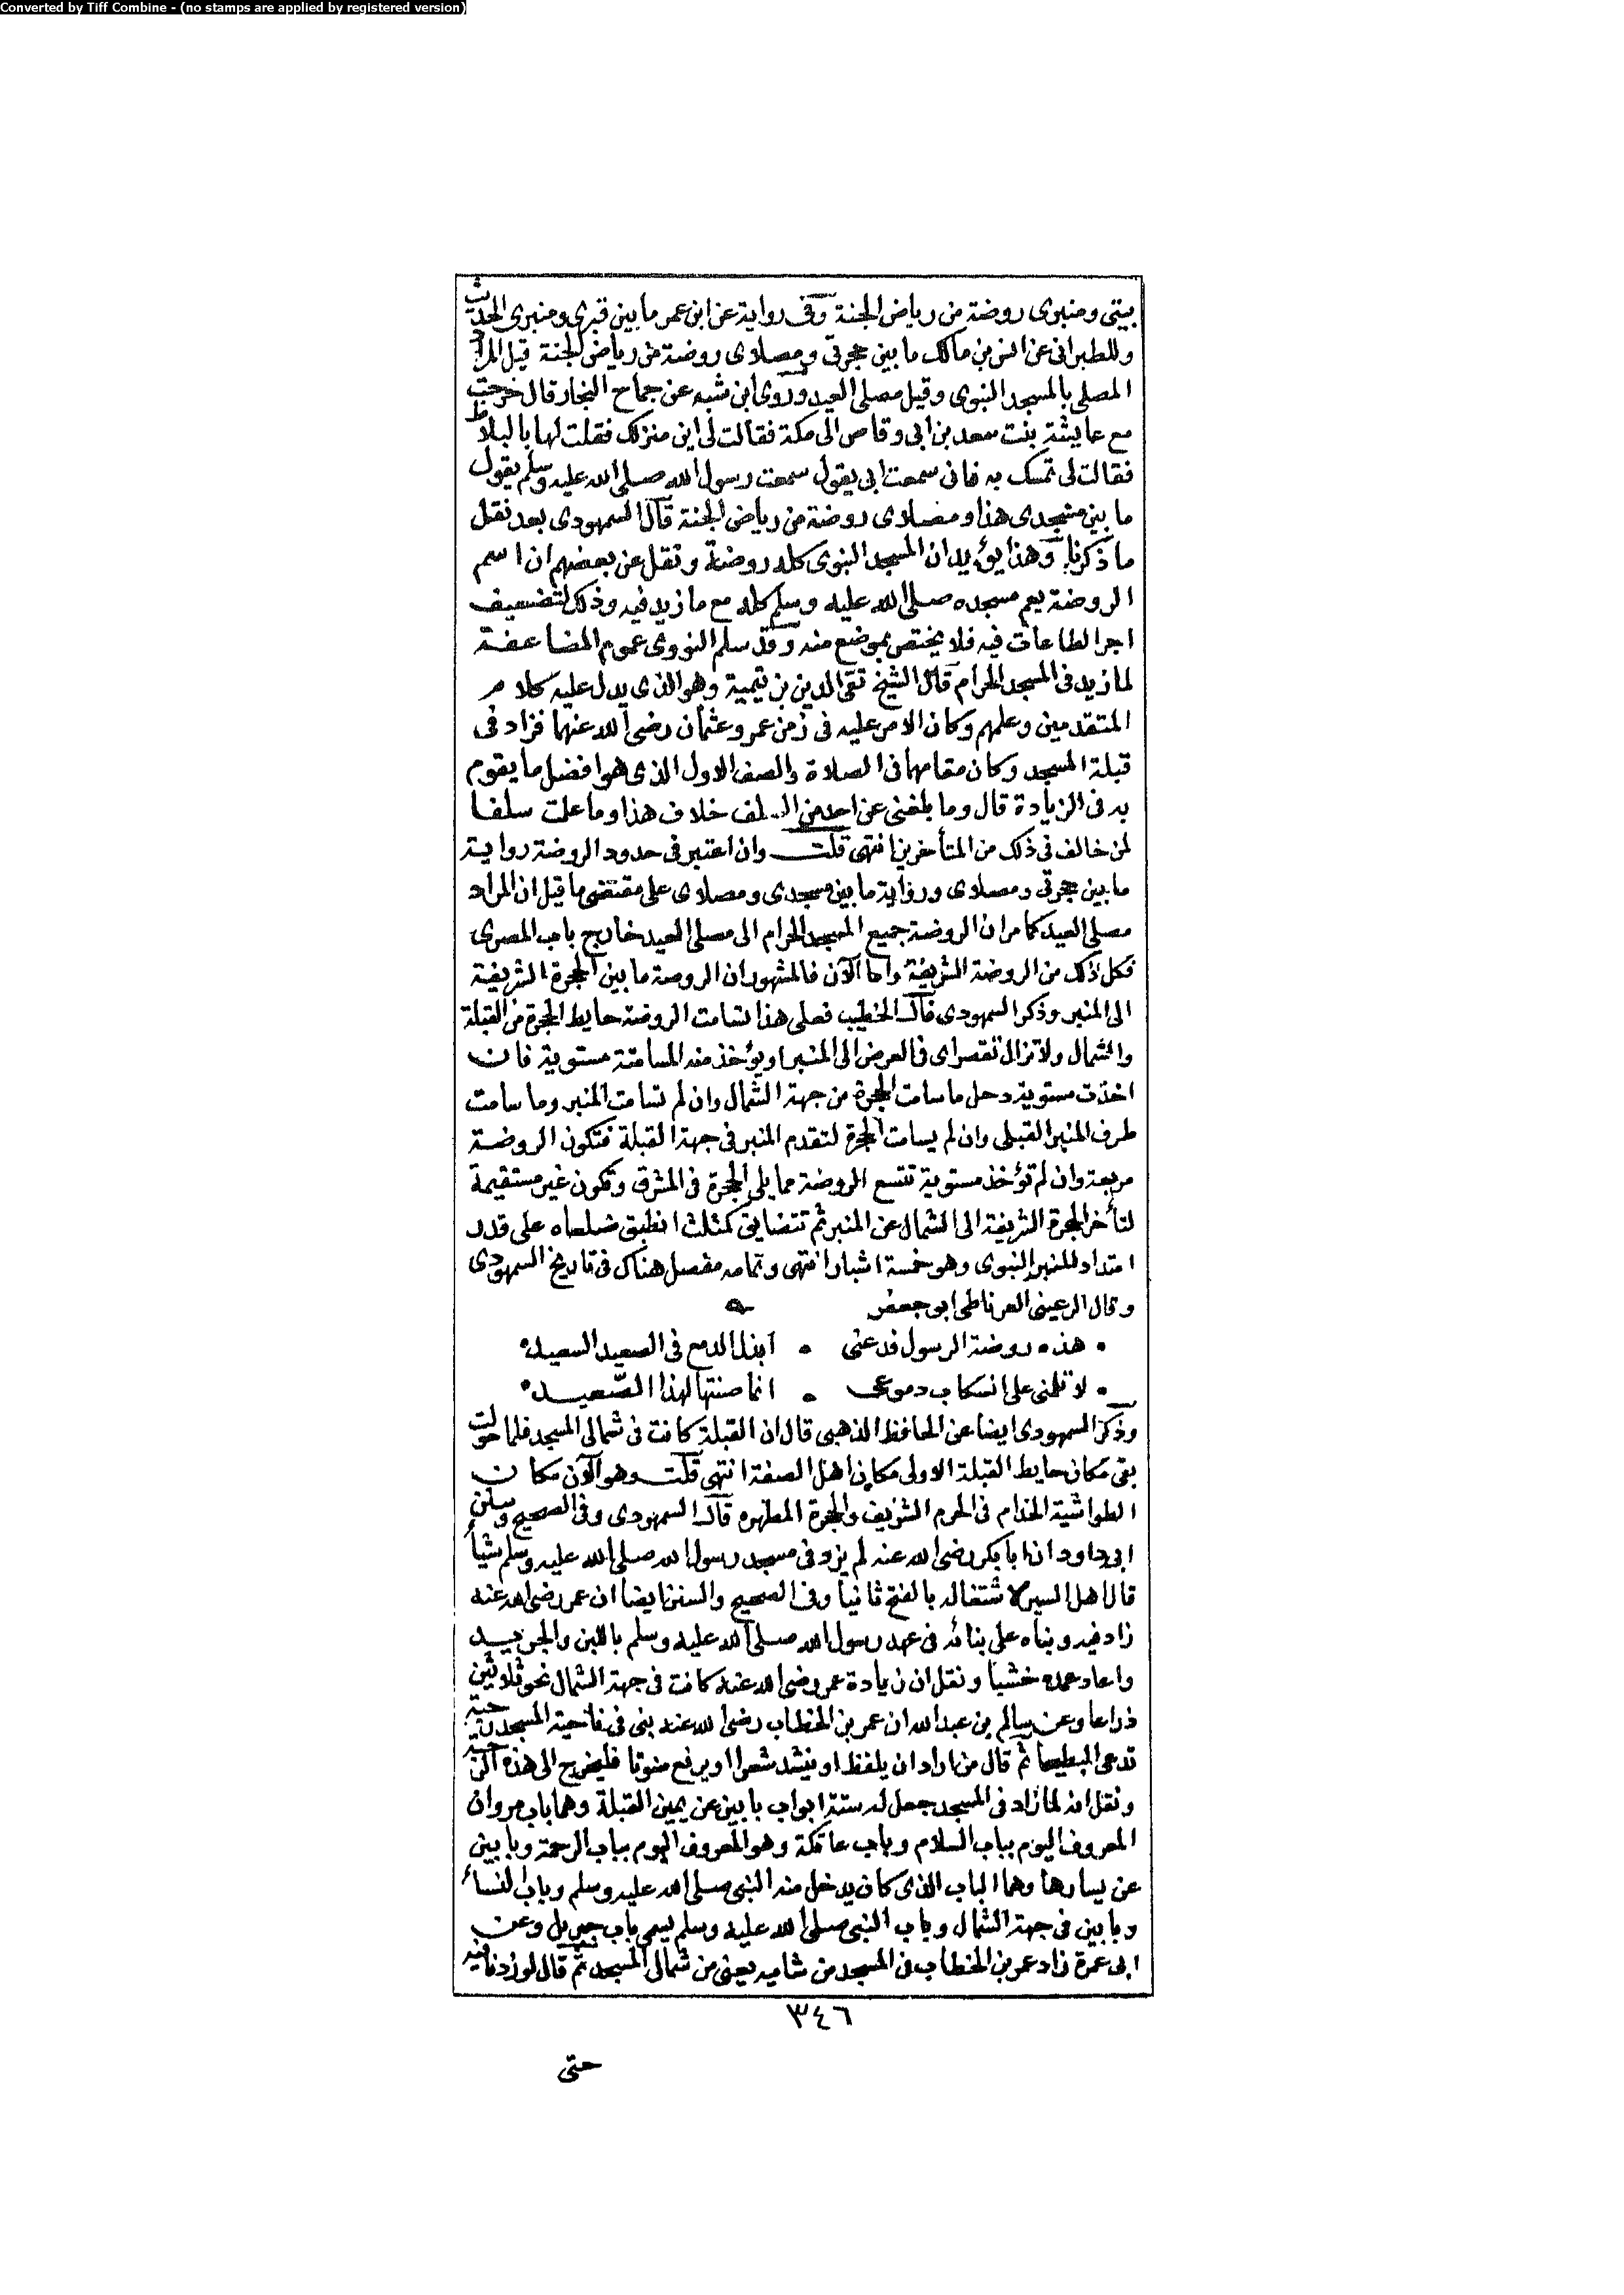 Converted by Tiff Combine - (no stamps are applied by registered version)
بيتى ومنبرى روضة من رياض الجنة وفى رواية عن ابن عمر ما بين قبرى ومنبرى الحديث
وللطبرانى عن انس بن مالك ما بين حجرتى ومصلاى روضة من رياض الجنة قيل المراد
المصلى بالمسجد النبوى وقيل مصلى العيد وروى ابن شبه عن جماح النجار قال خرجت
مع عايشة بنت سعد بن ابى وقاص الى مكة فقالت لى اين منزلك فقلت لها بالبلاط
فقالت لى تمسك به فانى سمعت ابى يقول سمعت رسول الله صلى الله عليه وسلم يقول
ما بين مسجدى هذا ومصلاى روضة من رياض الجنة قال السمهودى بعد نقل
ما ذكرنا وهذا يؤيد ان المسجد النبوى كله روضة ونقل عن بعضهم ان اسم
الروضة يعم مسجده صلى الله عليه وسلم كله مع ما زيد فيه وذلك لتضعيف
اجر الطاعات فيه فلا يختص بموضع منه وقد سلم النووى عموم المضاعفة
لما زيد فى المسجد الحرام قال الشيخ تقى الدين بن تيمية وهو الذى يدل عليه كلام
المتقدمين وعلمهم وكان الامر عليه فى زمن عمر وعثمان رضى الله عنهما فزاد فى
قبلة المسجد وكان مقامهما فى الصلاة والصف الاول الذى هو افضل ما يقوم
به فى الزيادة قال وما بلغنى عن احد من السلف خلاف هذا وما علت سلفا
لمن خالف فى ذلك من المتأخرين انتهى قلت وان اعتبر فى حدود الروضة رواية
ما بين حجرتى ومصلاى ورواية ما بين مسجدى ومصلاى على مقتضى ما قيل ان المراد
مصلى العيد كما مر ان الروضة جميع المسجد الحرام الى مصلى العيد خارج باب المصرى
فكل ذلك من الروضة الشريفة واما الآن فالمشهور ان الروضة ما بين الحجرة الشريفة
الى المنبر وذكر السمهودى قال الخطيب فعلى هذا تسامت الروضة حايط الحجرة من القبلة
والشمال ولا تزال تقصر اى فى العرض الى المنبر او يؤخذ منه المسامتة مستوية فان
اخذت مستوية دخل ما سامت الحجرة من جهة الشمال وان لم تسامت المنبر وما سامت
طرف المنبر القبلى وان لم يسامت الحجرة لتقدم المنبر فى جهة القبلة فتكون الروضة
مربعة وان لم تؤخذ مستوية تتسع الروضة مما يلى الحجرة فى المشرق وتكون غير مستقيمة
لتأخر الحجرة الشريفة الى الشمال عن المنبر ثم تتضايق كمثلث انطبق ضلعاه على قدر
امتداد للمنبر النبوى وهو خمسة اشبار انتهى وتمامه مفصل هناك فى تاريخ السمهودى
وقال الرعينى الغرناطى ابو جعفر
هذه روضة الرسول فدعنى • ابذل الدمع فى الصعيد السعيد
لا تلمنى على انسكاب دموعى • انما صنتها لهذا الصعيد
وذكر السمهودى ايضا عن الحافظ الذهبى قال ان القبلة كانت فى شمالى المسجد فلما حولت
بقى مكان حايط القبلة الاولى مكان اهل الصفة انتهى قلت وهو الآن مكان
الطواشية الخدام فى الحرم الشريف والحجرة المطهره قال السمهودى وفى الصحيح وسنن
ابى داود ان ابا بكر رضى الله عنه لم يزد فى مسجد رسول الله صلى الله عليه وسلم شيأ
قال اهل السير لاشتغاله بالفتح ثانيا وفى الصحيح والسنن ايضا ان عمر رضى الله عنه
زاد فيه وبناه على بنائه فى عهد رسول الله صلى الله عليه وسلم باللبن والجريد
واعاد عمده خشبا ونقل ان زيادة عمر رضى الله عنه كانت فى جهة الشمال نحو ثلاثين
ذراعا وعن سالم بن عبد الله ان عمر بن الخطاب رضى الله عنه بنى فى ناحية المسجد رحبة
تدعى البطيحا ثم قال من اراد ان يلفظ او ينشد شعرا او يرفع صوتا فليخرج الى هذه الرحبة
ونقل انه لما زاد فى المسجد جعل له ستة ابواب بابين عن يمين القبلة وهما باب مروان
المعروف اليوم بباب السلام وباب عاتكة وهو المعروف اليوم بباب الرحمة وبابين
عن يسارها وهما الباب الذى كان يدخل منه النبى صلى الله عليه وسلم وباب النساء
وبابين فى جهة الشمال وباب النبى صلى الله عليه وسلم يسمى باب جبريل وعن
ابى عمرة زاد عمر بن الخطاب فى المسجد من شاميه يعنى من شمالى المسجد ثم قال لو زدنا فيه
٣٤٦
حتى